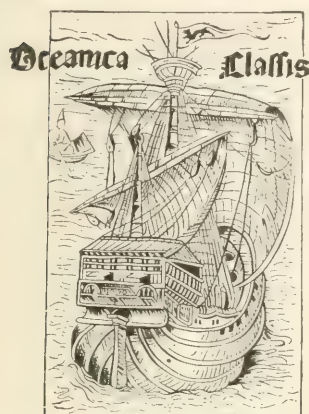 Oceanica Classis